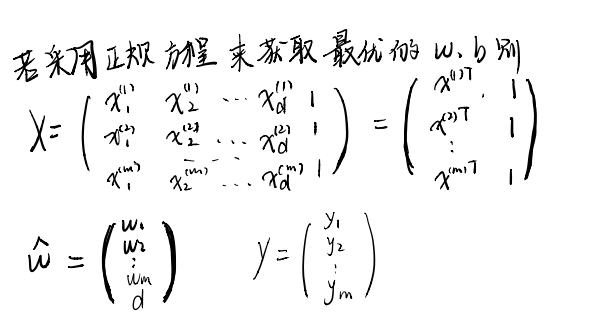 若采用正规方程来获取最优的 w、b 则
X = ( x₁⁽¹⁾ x₂⁽¹⁾ ⋯ x_d⁽¹⁾ 1
x₁⁽²⁾ x₂⁽²⁾ ⋯ x_d⁽²⁾ 1
x₁⁽ᵐ⁾ x₂⁽ᵐ⁾ ⋯ x_d⁽ᵐ⁾ 1 ) = ( x⁽¹⁾ᵀ 1
x⁽²⁾ᵀ 1
⋮
x⁽ᵐ⁾ᵀ 1 )
ŵ = ( w₁
w₂
⋮
w_m
d )
y = ( y₁
y₂
⋮
y_m )